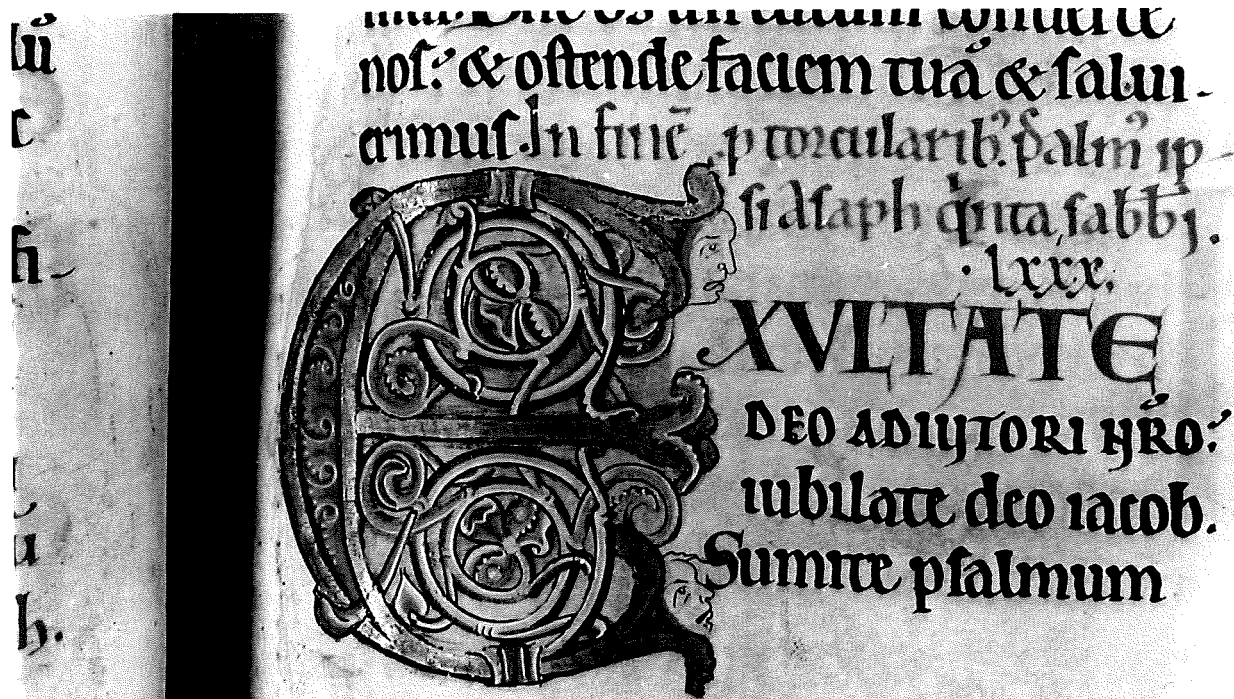 nos: & ostende faciem tuā & salui-
erimus. In finē p torcularib: psalm' ip
si Asaph qnta sabbi.
.lxxx.
EXVLTATE
DEO ADIUTORI NR̄O:
iubilate deo iacob.
Sumite psalmum